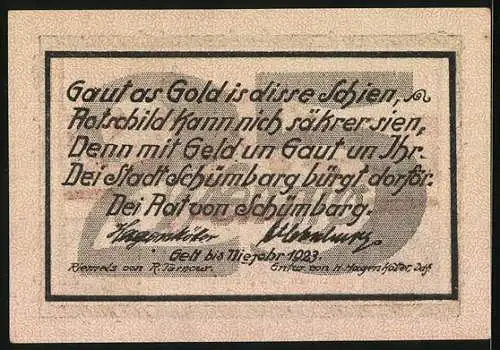 Gaut as Gold is disse Schien,
Rotschild kann nich säkrer sien,
Denn mit Geld un Gaut un Ihr.
Dei Stadt Schümbarg bürgt dorför.
Dei Rat von Schümbarg.
Hagenkötter
Gelt bis Niejohr 1923.
Riemels von R. Tarnour. Entw. von H. Hagenkötter, Düf
25